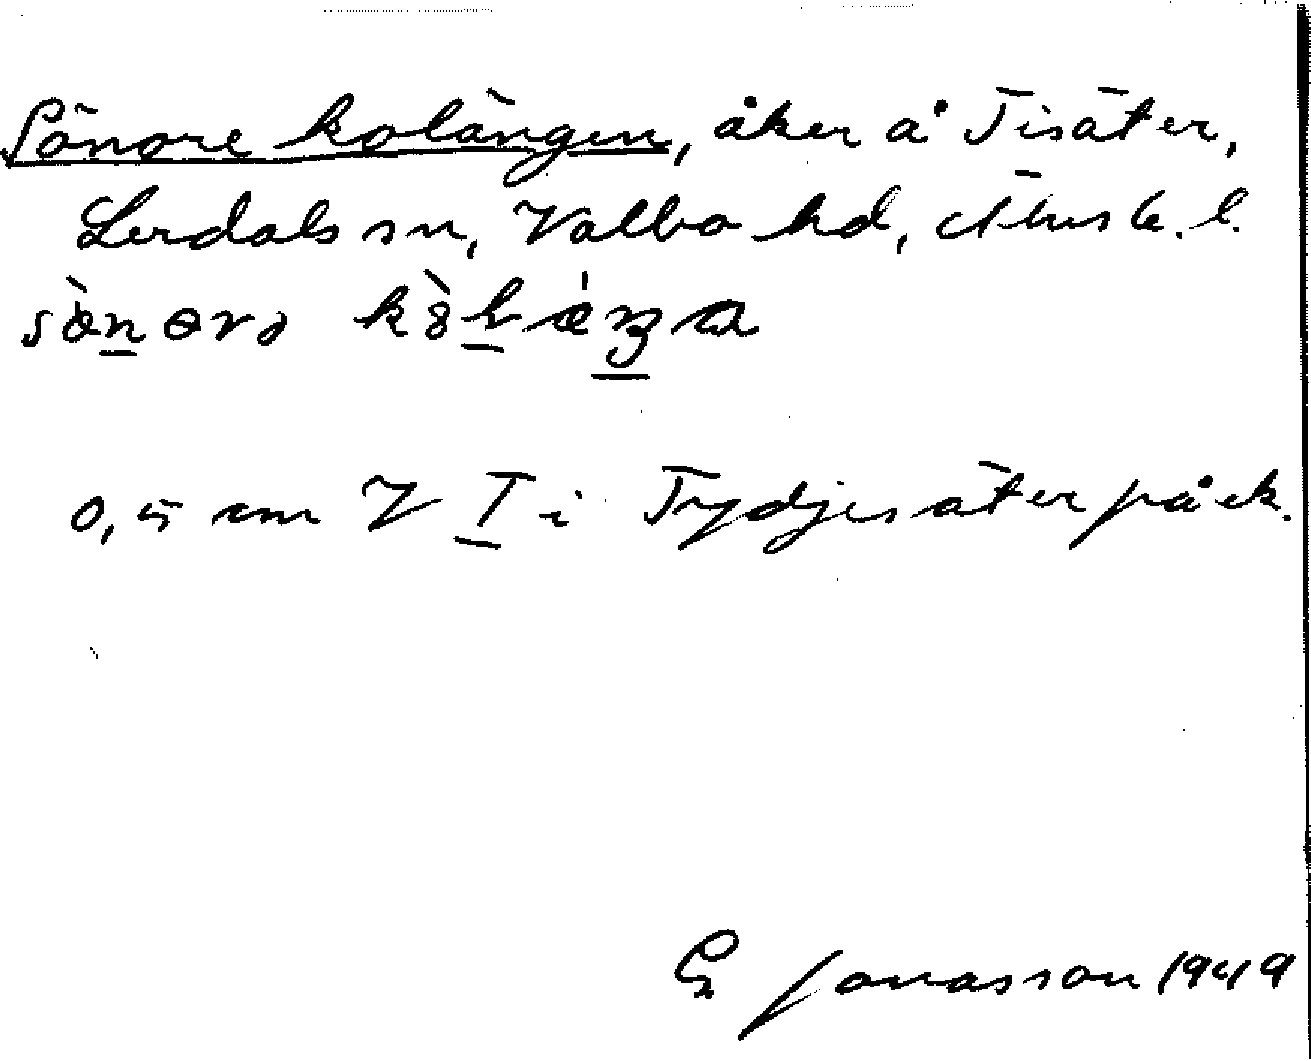 Sönore kolängen, åker å Tisäter,
Lerdals sn, Valbo hd, Älvsb. l.
0,5 cm V T i Tydjesäter på ek.
E Jonasson 1949